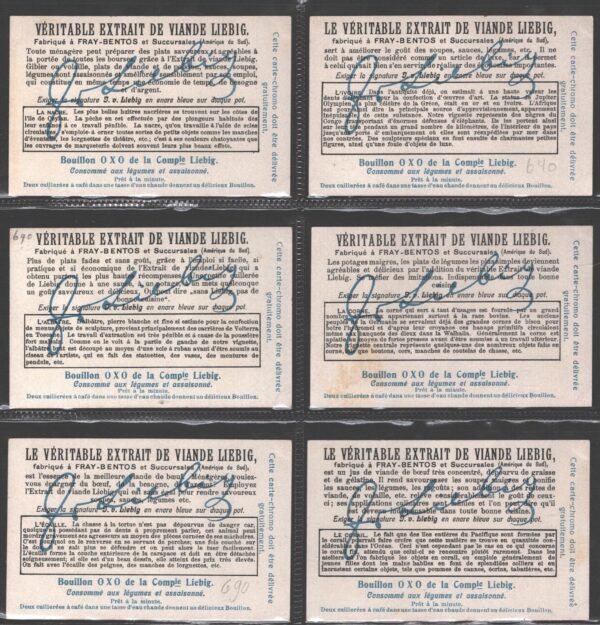 VÉRITABLE EXTRAIT DE VIANDE LIEBIG.
Fabriqué à FRAY-BENTOS et Succursales (Amérique du Sud).
Toute ménagère peut préparer des plats savoureux et agréables à
la portée de toutes les bourses grâce à l'Extrait de viande Liebig.
Gibier ou volaille, plats de viande et de poisson, sauces, soupes,
légumes sont
par son emploi,
qui constitue en même temps une économie de temps, de besogne
et d'argent.
Exiger la signature J. v. Liebig en encre bleue sur chaque pot.
LA NACRE. Les plus belles huîtres nacrières se trouvent sur les côtes de
l'île de
La pêche en est effectuée par des plongeurs habitués dès
leur enfance à ce travail pénible. La nacre, qu'on travaille à l'aide de scies
s'emploie à orner toutes sortes de petits objets comme les manches
d'éventails, les lorgnettes de théâtre, etc.; c'est à ses couleurs chatoyantes que
les ouvrages de marqueterie doivent souvent leurs plus beaux effets.
Bouillon OXO de la Compie Liebig.
Consommé aux légumes et assaisonné.
Prêt à la minute.
Deux cuillerées à café dans une tasse d'eau chaude donnent un délicieux Bouillon.
Cette carte-chromo doit être délivrée
gratuitement.
LE VÉRITABLE EXTRAIT DE VIANDE LIEBIG,
fabriqué à FRAY-BENTOS et Succursales (Amérique du Sud),
sert à améliorer le goût des soupes, sauces, légumes, etc. Il ne
doit pas être considéré comme un article de luxe, car il permet
à celui qui sait s'en servir de réaliser de
Exiger la signature J. v. Liebig en encre bleue sur chaque pot.
L'IVOIRE.
l'antiquité déjà, on estimait à une haute valeur les
dents de l'éléphant pour la confection d'œuvres d'art. La statue de Jupiter
Olympien,
de la Grèce, était en or et en ivoire. L'Afrique
est pour ainsi dire la principale source d'approvisionnement, apparemment
de cette substance. Notre vignette représente des nègres du
apportant d'énormes défenses d'éléphants. Ils les portent ainsi
sur leur dos pendant un grand nombre de kilomètres, de l'intérieur du pays
jusqu'au port d'embarquement où elles sont réexpédiées par mer dans
nos contrées. Des sculpteurs patients en font ensuite de charmantes petites
figures, ainsi qu'une foule d'objets de luxe.
Bouillon OXO de la Compie Liebig.
Consommé aux légumes et assaisonné.
Prêt à la minute.
Deux cuillerées à café dans une tasse d'eau chaude donnent un délicieux Bouillon.
640
Cette carte-chromo doit être délivrée
gratuitement.
690
VÉRITABLE EXTRAIT DE VIANDE LIEBIG.
Fabriqué à FRAY-BENTOS et Succursales (Amérique du Sud).
Plus de plats fades et sans goût, grâce à l'emploi si facile, si
pratique et si économique de l'Extrait de viande Liebig qui a
obtenu
les plus hautes récompenses.
cuillerée
de Liebig à une
à un
ou à un mets quelconque
un goût savoureux et délicieux. On
dire „sans Liebig pas de
bonne cuisine".
Exiger la signature J. v. Liebig en encre bleue sur chaque pot.
L'ALBÂTRE. L'albâtre, pierre blanche et fine si estimée pour la confection
de menus objets de sculpture, provient principalement des carrières de Volterra
en Toscane. Le travail d'extraction est très pénible et à cause de la poussière
fort malsain. Comme on le voit à la partie de gauche de notre vignette,
l'albâtre est découpé au moyen d'une scie à ruban avant d'être soumis au
ciseau de l'artiste, qui en fait des statuettes, des vases, des montures de
pendule, etc.
Bouillon OXO de la Compie Liebig.
Consommé aux légumes et assaisonné.
Prêt à la minute.
Deux cuillerées à café dans une tasse d'eau chaude donnent un délicieux Bouillon.
Cette carte-chromo doit être délivrée
gratuitement.
VÉRITABLE EXTRAIT DE VIANDE LIEBIG.
Fabriqué à FRAY-BENTOS et Succursales (Amérique du Sud).
Les potages maigres, les plats de légumes les plus simples deviennent
agréables et délicieux par l'addition du véritable Extrait de viande
Liebig. Indispensable dans toute bonne
cuisine.
Exiger la signature J. v. Liebig en encre bleue sur chaque pot.
LA CORNE. La corne qui sert à tant d'usages est fournie
par
grand
nombre
appartenant surtout à la race bovine. Les anciens
Germains
déjà des grandes cornes de bison pour
boire et d'après leur croyance ces hanaps primitifs circulaient
aux banquets des dieux dans la Walhalla. Généralement la corne est
aplatie au moyen de fortes presses avant d'être soumise à un travail ultérieur.
Notre vignette centrale représente quelques-uns des nombreux objets faits en
corne, tels que boutons, cors, manches de couteaux, de chasse, etc.
Bouillon OXO de la Compie Liebig.
Consommé aux légumes et assaisonné.
Prêt à la minute.
Deux cuillerées à café dans une tasse d'eau chaude donnent un délicieux Bouillon.
Cette carte-chromo doit être délivrée
gratuitement.
LE VÉRITABLE EXTRAIT DE VIANDE LIEBIG,
fabriqué à FRAY-BENTOS et Succursales (Amérique du Sud),
est l'essence de la meilleure viande de bœuf
voulez-
vous épargner du bœuf, du temps, de la besogne, de l'argent, employez
l'Extrait de viande Liebig. Il est
pour rendre savoureux
soupes, sauces, légumes, etc.
Exiger la signature J. v. Liebig en encre bleue sur chaque pot.
L'ÉCAILLE. La chasse à la tortue n'est pas dépourvue de danger car,
quoique ne possédant pas de dents à proprement parler, cet animal peut
mordre vivement ses agresseurs au moyen des pièces cornées de ses mâchoires.
C'est pourquoi on le renverse en se servant de perches; une fois couché sur
le dos il ne sait plus se défendre et on peut alors le tuer facilement.
L'écaille forme la couche extérieure de la carapace et doit en être détachée
soigneusement, si elle est de beau dessin, elle atteint des prix très élevés.
On fait avec l'écaille des peignes, des manches de lorgnettes, etc.
Bouillon OXO de la Compie Liebig.
Consommé aux légumes et assaisonné.
Prêt à la minute.
Deux cuillerées à café dans une tasse d'eau chaude donnent un délicieux Bouillon.
690
Cette carte-chromo doit être délivrée
gratuitement.
LE VÉRITABLE EXTRAIT DE VIANDE LIEBIG,
fabriqué à FRAY-BENTOS et Succursales (Amérique du Sud),
est un jus de viande de bœuf très concentré, dépourvu de graisse
et de gélatine. Il rend savoureuses les soupes
bonifie
les sauces, les légumes,
etc.;
de
viande, de volaille, etc.
de ceux-
ci; ses applications culinaires sont
et l'on peut dire qu'il
constitue
toute bonne cuisine.
Exiger la signature J. v. Liebig en encre bleue sur chaque pot.
LE CORAIL. Le fait que des îles entières du Pacifique sont formées par
le corail pourrait faire croire que cette matière se trouve en quantités
dans l'Océan. Il n'en est cependant pas le cas en ce qui concerne
le corail
attendu que celui-ci se rencontre plutôt rarement. Dans les pays
où l'on fabrique les objets en corail, on emploie généralement de
jeunes filles dont les mains habiles en font de splendides colliers et en
incrustent certains objets, tels que pommes de cannes, écrins, tabatières, etc.
Bouillon OXO de la Compie Liebig.
Consommé aux légumes et assaisonné.
Prêt à la minute.
Deux cuillerées à café dans une tasse d'eau chaude donnent un délicieux Bouillon.
Cette carte-chromo doit être délivrée
gratuitement.